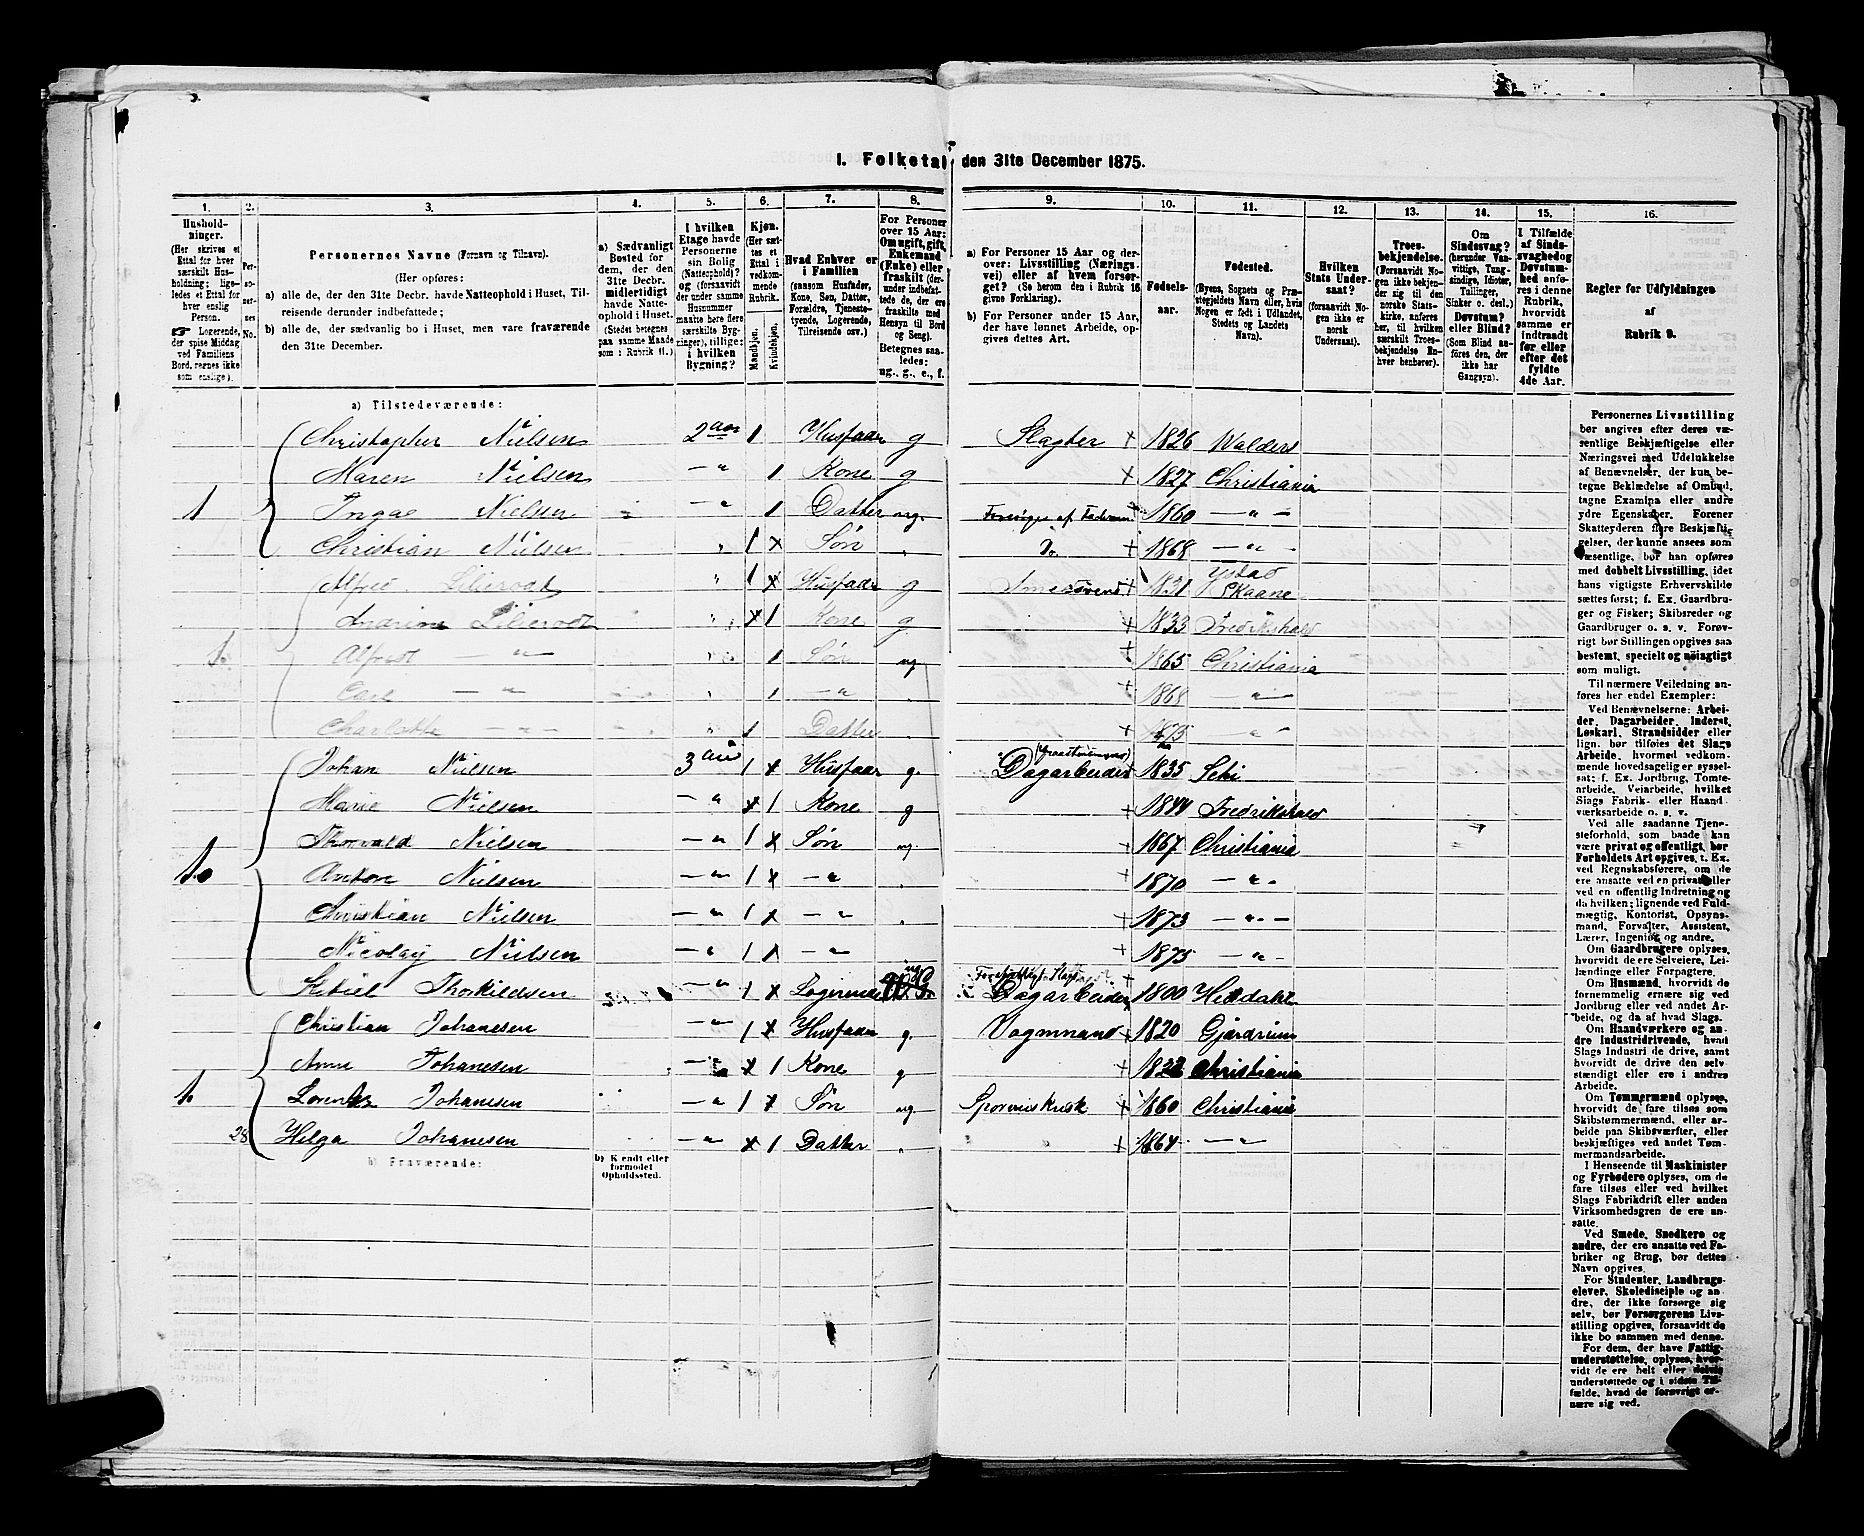 I. Folketal den 31te December 1875.
1. 2. 3. 4. 5. 6. 7. 8. 9. 10. 11. 12. 13. 14. 15. 16.
Husholdninger.
(Her skrives et Ettal for hver særskilt Husholdning; ligeledes et Ettal for hver enslig Person.
☞ Logerende, der spise Middag ved Familiens Bord, regnes ikke som enslige).
Personernes No.
Personernes Navne (Fornavn og Tilnavn).
(Her opføres:
a) alle de, der den 31te Decbr. havde Natteophold i Huset, Tilreisende derunder indbefattede;
b) alle de, der sædvanlig bo i Huset, men vare fraværende den 31te December.
a) Sædvanligt Bosted for dem, der den 31te Decbr. midlertidigt havde Natteophold i Huset.
(Stedet betegnes paa samme Maade som i Rubrik 11.)
I hvilken Etage havde Personerne sin Bolig (Natteophold)? og (forsaavidt der under samme Husnummer maatte høre flere særskilte Bygninger), tillige: i hvilken Bygning?
Kjøn.
(Her sættes et Ettal i vedkommende Rubrik.
Mandkjøn. Kvindekjøn.
Hvad Enhver er i Familien
(saasom Husfader, Kone, Søn, Datter, Forældre, Tjenestetyende, Logerende, Tilreisende osv.)
For Personer over 15 Aar: Om ugift, gift, Enkemand (Enke) eller fraskilt (derunder indbefattede de, der ere fraskilte med Hensyn til Bord og Seng).
Betegnes saaledes: ug., g., e., f.
a) For Personer 15 Aar og derover: Livsstilling (Næringsvei) eller af hvem forsørget? (Se herom den i Rubrik 16 givne Forklaring).
b) For Personer under 15 Aar, der have lønnet Arbeide, opgives dettes Art.
Fødselsaar.
Fødested.
(Byens, Sognets og Præstegjeldets Navn eller, hvis Nogen er født i Udlandet, Stedets og Landets Navn).
Hvilken Stats Undersaat?
(forsaavidt Nogen ikke er norsk Undersaat).
Troesbekjendelse.
(Forsaavidt Nogen ikke bekjender sig til den norske Statskirke, anføres her, til hvilken særskilt Troesbekjendelse Enhver henhører).
Om Sindssvag? (herunder Vanvittige, Tungsindige, Idioter, Tullinger, Sinker o. desl.) Døvstum? eller Blind? (Som Blind anføres den, der ikke har Gangsyn).
I Tilfælde af Sindssvaghed og Døvstumhed anføres i denne Rubrik, hvorvidt samme er indtraadt før eller efter det fyldte 4de Aar.
Regler for Udfyldningen af Rubrik 9.
a) Tilstedeværende:
Christopher Nielsen 2 1 Husfader g Slagter + 1826 Walders
Maren Nielsen — " 1 Kone g + 1827 Christiania
1 Ingae Nielsen — " 1 Datter ug. Forsørges af Faderen 1860 — " —
Christian Nielsen " 1 x Søn " Do + 1868 — " —
Alfred Liljerodt " 1 x Husfader g + 1831 Ystad Skaane
Liljerodt " x 1 Kone g + 1833 Fredrikshald
1. Alfredt — " — 1 Søn ug + 1865 Christiania
Carl — " — 1 — " + 1868 — " —
Charlotte — " — 1 Datter + 1875 "
Johan Nielsen 3 1 x Husfader g. Dagarbeider 1835 Schi
Marie Nielsen — " x 1 Kone g + 1844 Fredrikshald
Thorvald Nielsen — " 1 x Søn ug + 1867 Christiania
1. Anton Nielsen — " 1 x — " " + 1870 — " —
Christian Nielsen — " 1 x — " " + 1873 — " —
Nicolay Nielsen — " 1 1 — " + 1875 — " —
Thorkildsen — " 1 x Logerende ug Dagarbeider 1800 Hitdahl
Christian Johanesen — " 1 x Husfader g. Vognmand + 1820 Gjerdrum
Anne Johanesen — " x 1 Kone g + 1822 Christiania
1. Lorents Johanesen — " 1 x Søn ug Sporveiskusk + 1860 Christiania
28 Helga Johanesen — " x 1 Datter " + 1864 — " —
b) Fraværende:
b) Kjendt eller formodet Opholdssted.
Personernes Livsstilling bør angives efter deres væsentlige Beskjæftigelse eller Næringsvei med Udelukkelse af Benævnelser, der kun betegne Beklædelse af Ombud, tagne Examina eller andre ydre Egenskaber. Forener Skatteyderen flere Beskjæftigelser, der kunne ansees som væsentlige, bør han opføres med dobbelt Livsstilling, idet hans vigtigste Erhvervskilde sættes først; f. Ex. Gaardbruger og Fisker; Skibsreder og Gaardbruger o. s. v. Forøvrigt bør Stillingen opgives saa bestemt, specielt og nøiagtigt som muligt.
Til nærmere Veiledning anføres her endel Exempler:
Ved Benævnelserne: Arbeider, Dagarbeider, Inderst, Løskarl, Strandsidder eller lign. bør tilføies det Slags Arbeide, hvormed vedkommende hovedsagelig er sysselsat; f. Ex. Jordbrug, Tomtearbeide, Veiarbeide, hvilket Slags Fabrik- eller Haandværksarbeide o. s. v.
Ved alle saadanne Tjenesteforhold, som baade kan være privat og offentligt, bør Forholdets Art opgives, t. Ex. ved Regnskabsførere, om de ere ansatte ved en privat eller ved en offentlig Indretning og da hvilken; lignende ved Fuldmægtig, Kontorist, Opsynsmand, Forvalter, Assistent, Lærer, Ingeniør og andre.
Om Gaardbrugere oplyses, hvorvidt de ere Selveiere, Leilændinge eller Forpagtere.
Om Husmænd, hvorvidt de fornemmelig ernære sig ved Jordbrug eller ved andet Arbeide, og da af hvad Slags.
Om Haandværkere og andre Industridrivende, hvad Slags Industri de drive, samt hvorvidt de drive den selvstændigt eller ere i andres Arbeide.
Om Tømmermænd oplyses, hvorvidt de fare tilsøs som Skibstømmermænd, eller arbeide paa Skibsværfter, eller beskjæftiges ved andet Tømmermandsarbeide.
I Henseende til Maskinister og Fyrbødere oplyses, om de fare tilsøs eller ved hvilket Slags Fabrikdrift eller anden Virksomhedsgren de ere ansatte.
Ved Smede, Snedkere og andre, der ere ansatte ved Fabriker og Brug, bør dettes Navn opgives.
For Studenter, Landbrugselever, Skoledisciple og andre, der ikke forsørge sig selv, bør Forsørgerens Livsstilling opgives, forsaavidt de ikke bo sammen med denne.
For dem, der have Fattigunderstøttelse, oplyses, hvorvidt de ere helt eller delvis understøttede og i sidste Tilfælde, hvad de forøvrigt ernære sig ved.